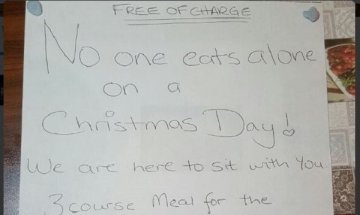 FREE OF CHARGE
No one eats alone
on a
Christmas Day!
We are here to sit with you
3 course Meal for the